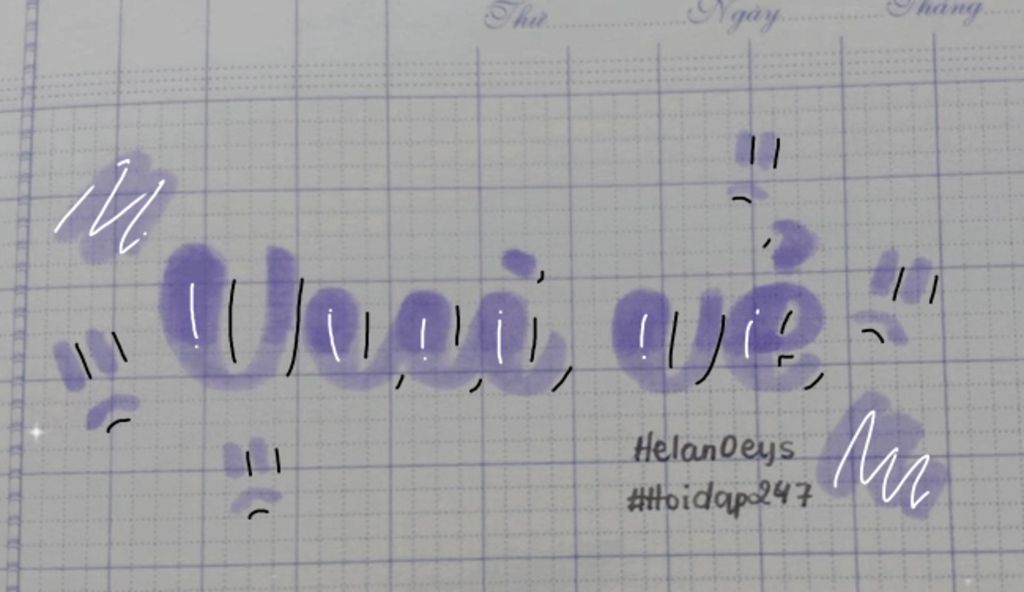 Thứ Ngày Tháng
Vui vẻ
HelanOeys
#Hoidap247